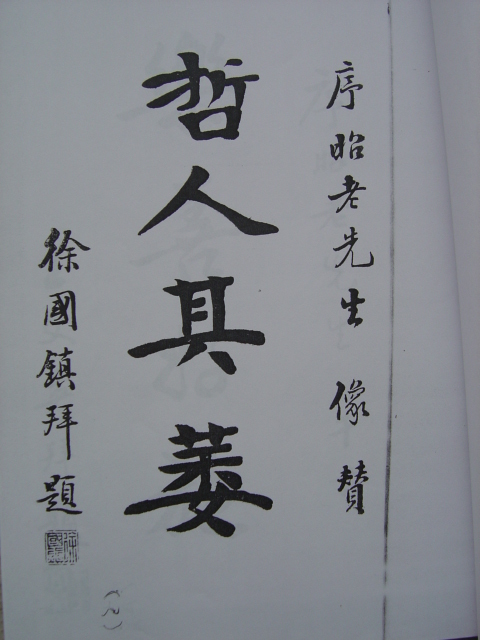 序昭老先生 像贊
哲人其萎
徐國鎮拜題